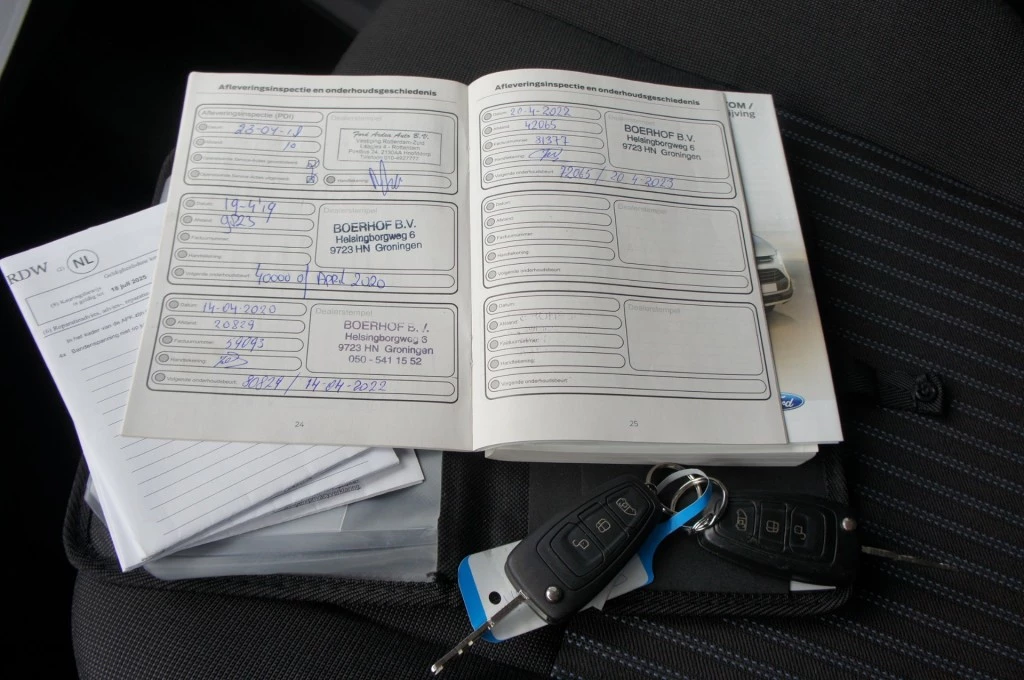 Afleveringsinspectie en onderhoudsgeschiedenis
Afleveringsinspectie (PDI)
Datum:
23-04-18
10
Ford Arden Auto B.V.
Vestiging Rotterdam-Zuid
Handtekening:
Datum:
19-4-'19
Afstand:
9323
Factuurnummer:
Handtekening:
Volgende onderhoudsbeurt:
40000 of April 2020
Dealerstempel
BOERHOF B.V.
Helsingborgweg 6
9723 HN Groningen
Datum:
14-04-2020
Afstand:
20829
Factuurnummer:
59093
Handtekening:
Volgende onderhoudsbeurt:
80829 / 14-04-2022
Dealerstempel
BOERHOF B.V.
Helsingborgweg 3
9723 HN Groningen
050 - 541 15 52
24
Afleveringsinspectie en onderhoudsgeschiedenis
Datum:
20-4-2022
Afstand:
42065
Factuurnummer:
81377
Handtekening:
Volgende onderhoudsbeurt:
72065 / 20 4-2023
Dealerstempel
BOERHOF B.V.
Helsingborgweg 6
9723 HN Groningen
Datum:
Afstand:
Factuurnummer:
Handtekening:
Volgende onderhoudsbeurt:
Dealerstempel
Datum:
Afstand:
Factuurnummer:
Handtekening:
Volgende onderhoudsbeurt:
Dealerstempel
25
OM /
ijving
RDW
NL
18 juli 2025